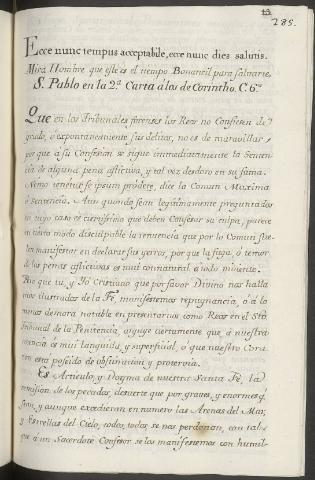 13
285.
Ecce nunc tempus acceptabile, ecce nunc dies salutis.
Mirá Hombre que este es el tiempo Bonancil para salvarte.
S. Pablo en la 2.ª Carta á los de Corintho. C. 6.º
Que en los Tribunales forenses los Reos no Confiesen de
grado, ó expontaneamente sus delitos, no es de maravillar,
por que á su Confesion se sigue immediatamente la Senten-
cia de alguna pena aflictiva, y tal vez desdoro en su fama.
Nemo tenetur se ipsum prodere, dice la Comun Maxima
ó Sentencia. Aun quando sean legitimamente preguntados
en cuyo caso es ciertissimo que deben Confesar su culpa, parece
en cierto modo disculpable la renuencia que por lo Comun sue-
len manifestar en declarar sus yerros, por que la fuga, ó temor
de las penas aflictivas es mui connatural á todo viviente.
Pero que tu, y Yo Cristiano que por favor Divino nos halla
mos ilustrados de la Fe, manifestemos repugnancia, ó á lo
menos demora notable en presentarnos como Reos en el Sto
Tribunal de la Penitencia, arguye ciertamente que á nuestra
creencia es mui languida, y superficial, ó que nuestro Cora-
zon está poseido de obstinacion y protervia.
Es Articulo, y Dogma de nuestra Santa Fe, la
remision de los pecados, desuerte que por graves, y enormes q.
sean, y aunque excedieran en numero las Arenas del Mar,
y Estrellas del Cielo, todos, todos se nos perdonan, con tal
que á un Sacerdote Confesor se los manifestemos con humil-